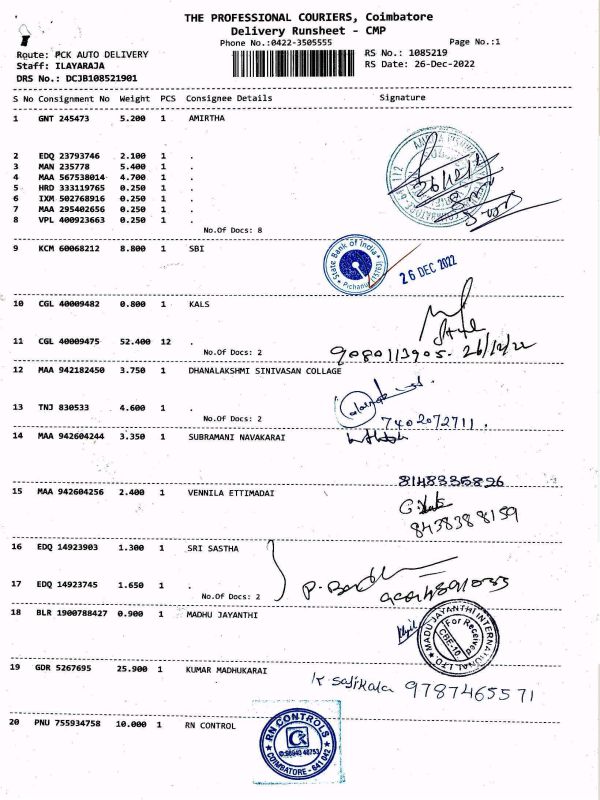 THE PROFESSIONAL COURIERS, Coimbatore
Delivery Runsheet - CMP
Phone No.:0422-3505555
Page No.:1
Route: PCK AUTO DELIVERY
RS No.: 1085219
Staff: ILAYARAJA
RS Date: 26-Dec-2022
DRS No.: DCJB108521901
S No Consignment No Weight PCS Consignee Details Signature
1 GNT 245473 5.200 1 AMIRTHA
2 EDQ 23793746 2.100 1 .
3 MAN 235778 5.400 1 .
4 MAA 567538014 4.700 1 .
5 HRD 333119765 0.250 1 .
6 IXM 502768916 0.250 1 .
7 MAA 295402656 0.250 1 .
8 VPL 400923663 0.250 1 .
No.Of Docs: 8
9 KCM 60068212 8.800 1 SBI
State Bank of India
26 DEC 2022
10 CGL 40009482 0.800 1 KALS
11 CGL 40009475 52.400 12 .
No.Of Docs: 2
9080113905. 26/12/22
12 MAA 942182450 3.750 1 DHANALAKSHMI SINIVASAN COLLAGE
13 TNJ 830533 4.600 1 .
No.Of Docs: 2
7402072711.
14 MAA 942604244 3.350 1 SUBRAMANI NAVAKARAI
8148335826
15 MAA 942604256 2.400 1 VENNILA ETTIMADAI
8438388159
16 EDQ 14923903 1.300 1 SRI SASTHA
17 EDQ 14923745 1.650 1 .
No.Of Docs: 2
18 BLR 1900788427 0.900 1 MADHU JAYANTHI
MADU JAYANTHI INTERNATIONAL LTD
For Received
CBE-10
19 GDR 5267695 25.900 1 KUMAR MADHUKARAI
K sasikala 9787465571
20 PNU 755934758 10.000 1 RN CONTROL
RN CONTROLS
COIMBATORE - 641 042